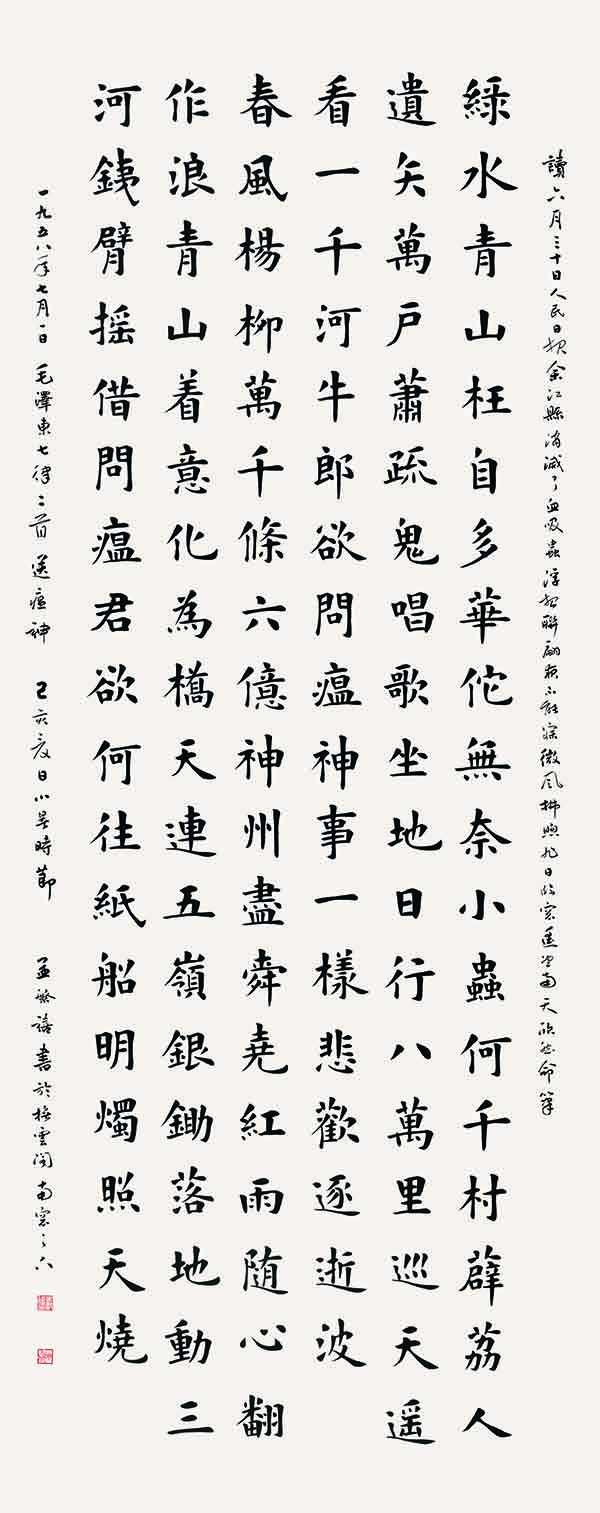 讀六月三十日人民日報余江縣消滅了血吸蟲浮想聯翩夜不能寐微風拂煦旭日臨窗遙望南天欣然命筆
綠水青山枉自多華佗無奈小蟲何千村薜荔人
遺矢萬戶蕭疏鬼唱歌坐地日行八萬里巡天遥
看一千河牛郎欲問瘟神事一樣悲歡逐逝波
春風楊柳萬千條六億神州盡舜堯紅雨随心翻
作浪青山着意化為橋天連五嶺銀鋤落地動三
河銕臂摇借問瘟君欲何往紙船明燭照天燒
一九五八年七月一日 毛澤東七律二首 送瘟神 己亥夏日小暑時節 孟繁禧書於雲閣南窗之下